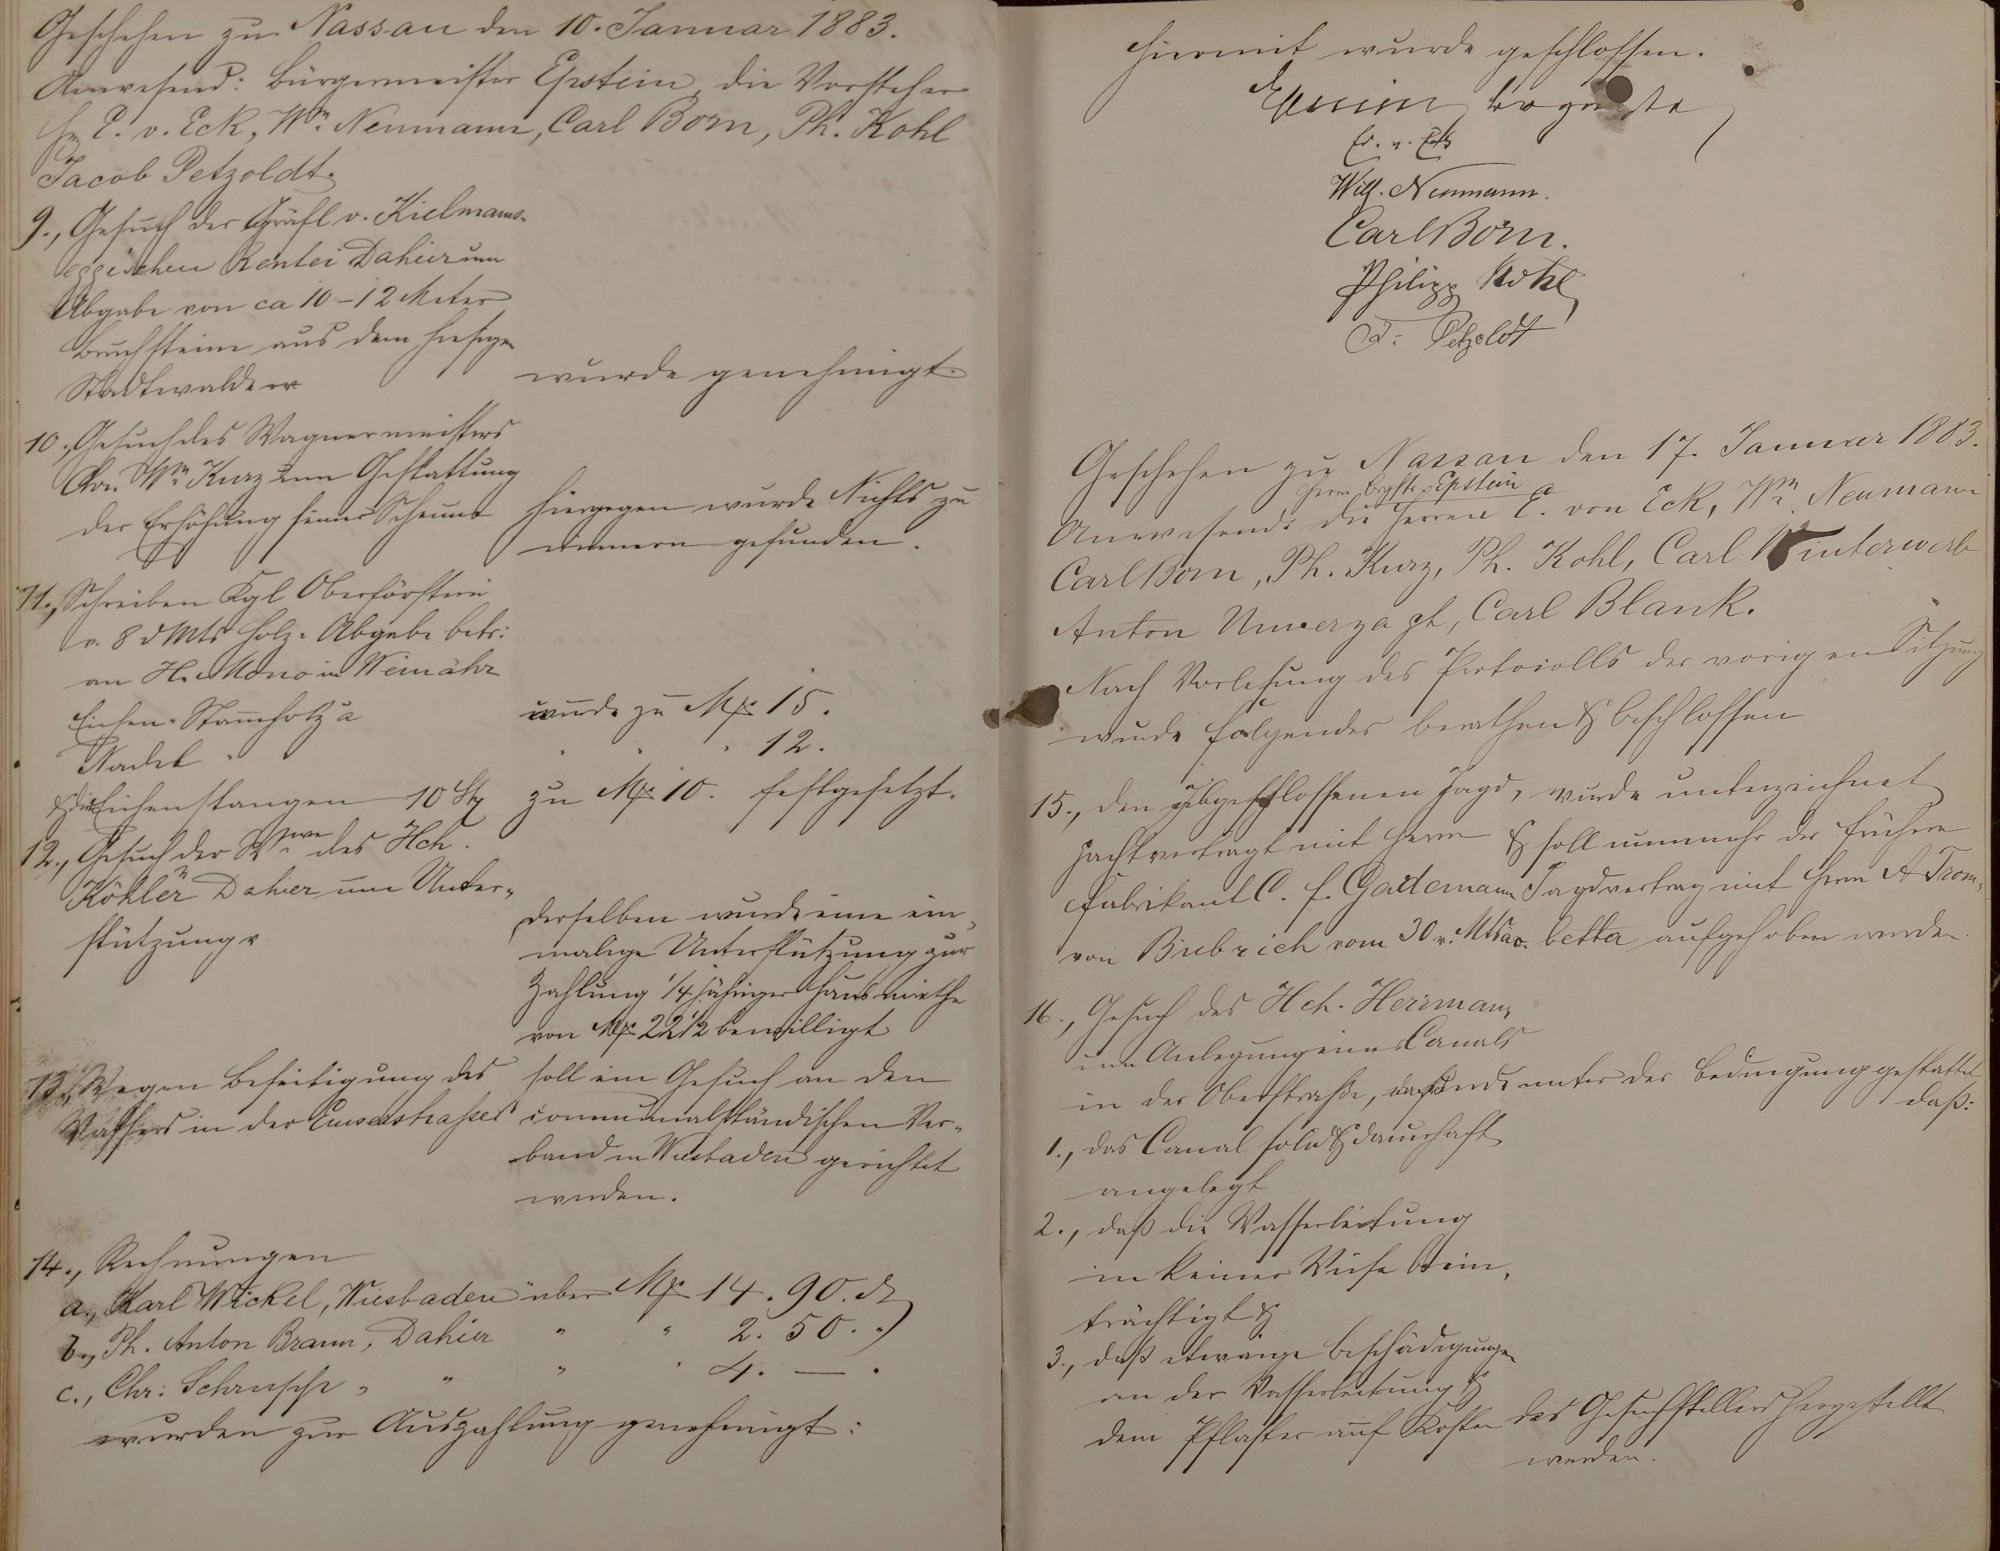 Geschehen zu Nassau den 10. Januar 1883.
Anwesend: Bürgermeister Epstein, die Vorsteher
Hr. E. v. Eck, Wm. Neumann, Carl Born, Ph. Kohl
Jacob Petzoldt.
9., Gesuch der Gräfl v. Kielmans-
eggischen Rentei Dahier um
Abgabe von ca 10-12 Meter
Bruchsteine aus dem hiesigen
Stadtwalde
wurde genehmigt.
10., Gesuch des Wagnermeisters
Wm. Kurz um Gestattung
der Erhöhung seiner Scheune
hiergegen wurde Nichts zu
erinnern gefunden.
11., Schreiben Kgl Oberförsterei
v. 8 d Mts Holz-Abgabe betr:
an H. Mono in Weinähr
Eichen-Stammholz a
wurde zu Mk 15.
Nadel "
" " " 12.
& die Eichenstangen 10 Stg
zu Mk 10. festgesetzt.
12., Gesuch der Wwe des Hch.
Köhler Dahier um Unter-
stützung
derselben wurde eine ein-
malige Unterstützung zur
Zahlung 1/4 jähriger Hausmiethe
von Mk 22 1/2 bewilligt
13., Wegen Beseitigung des
Wassers in der Emserstrasse
soll ein Gesuch an den
communalständischen Ver-
band in Wiesbaden gerichtet
werden.
14., Rechnungen
a., Karl Wickel, Wiesbaden über Mk 14. 90. d
b., Ph. Anton Braun, Dahier " " 2. 50. "
c., Chr: " " " " 4. — "
wurden zur Auszahlung genehmigt:
Hiermit wurde geschlossen.
Epstein
Ed. v. Eck
Wilh. Neumann.
Carl Born.
Philipp Kohl
J. Petzoldt
Geschehen zu Nassau den 17. Januar 1883.
Herr Bgmstr. Epstein
Anwesend: die Herren E. von Eck, Wm. Neumann
Carl Born, Ph. Kurz, Ph. Kohl, Carl Winterwerb
Anton Unverzagt, Carl Blank.
Nach Vorlesung des Protocolls der vorigen Sitzung
wurde folgendes berathen & beschlossen
15., den abgeschlossenen Jagd-
wurde unterzeichnet
pachtvertragt mit Herrn
& soll nunmehr der frühere
Fabrikant C. f. Gademann
Jagdvertrag mit Herrn A Trom-
von Biebrich vom 30 v. Mts a.
betta aufgehoben werden.
16., Gesuch des Hch. Herrmann
um Anlegung eines Canals
in der Oberstraße, wurde unter der Bedingung gestattet
daß:
1., das Canal solid & dauerhaft
angelegt
2., daß die Wasserleitung
in keiner Weise beein-
trächtigt &
3., daß etwaige Beschädigungen
an der Wasserleitung &
dem Pflaster auf Kosten des Gesuchstellers hergestellt
werden.